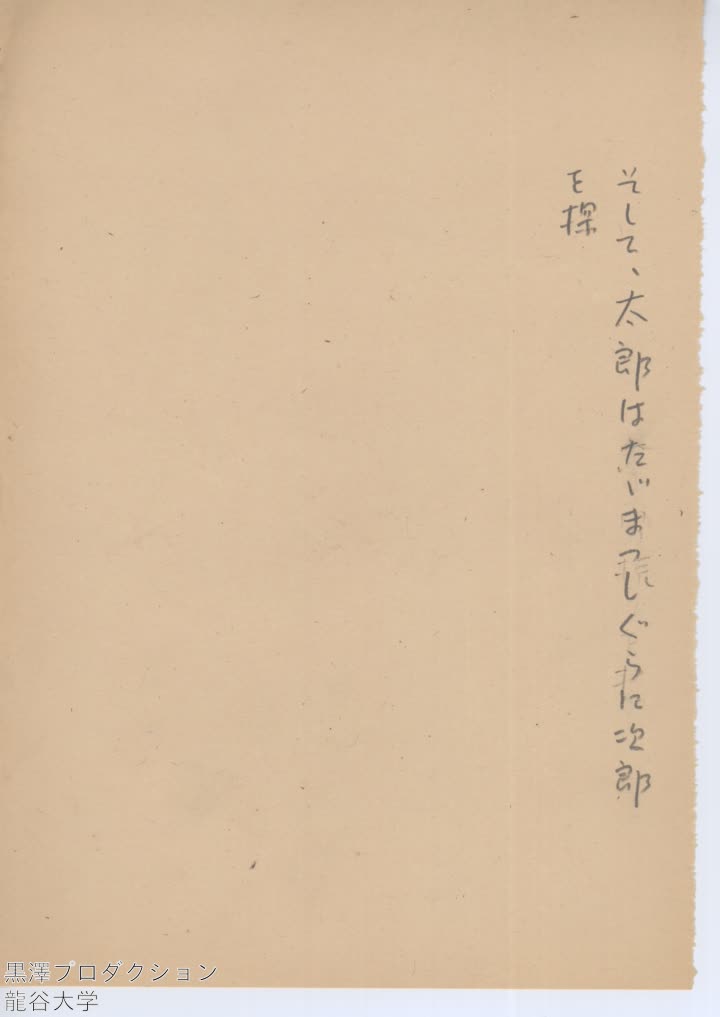 そして、太郎はたゞまっしぐらに次郎
を探
黒澤プロダクション
龍谷大学